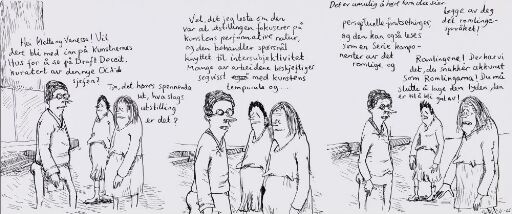 Hei Mette og Vanessa! Vil
dere bli med inn på Kunstnernes
Hus for å se på Draft Docent.
kuratert av den nye
sjefen?
Tja, det høres spennende
ut, hva slags
utstilling
er det?
Vel, det jeg leste om den
var at utstillingen fokuserer på
kunstens performative natur,
og den behandler spørsmål
knyttet til intersubjektivitet
Mange av arbeidene beskjeftiger
seg visst med kunstens
temporale og...
Det er umulig å høre hva den sier
begge av deg
det ramlinge-
språket!
perseptuelle forutsetninger
og den kan også leses
som en serie kompo-
nenter av det
romlige og
Ramlingene! Der har vi
det, de snakker akkurat
som Ramlingerna! Du må
slutte å lage den lyden, den
er til å bli gal av!